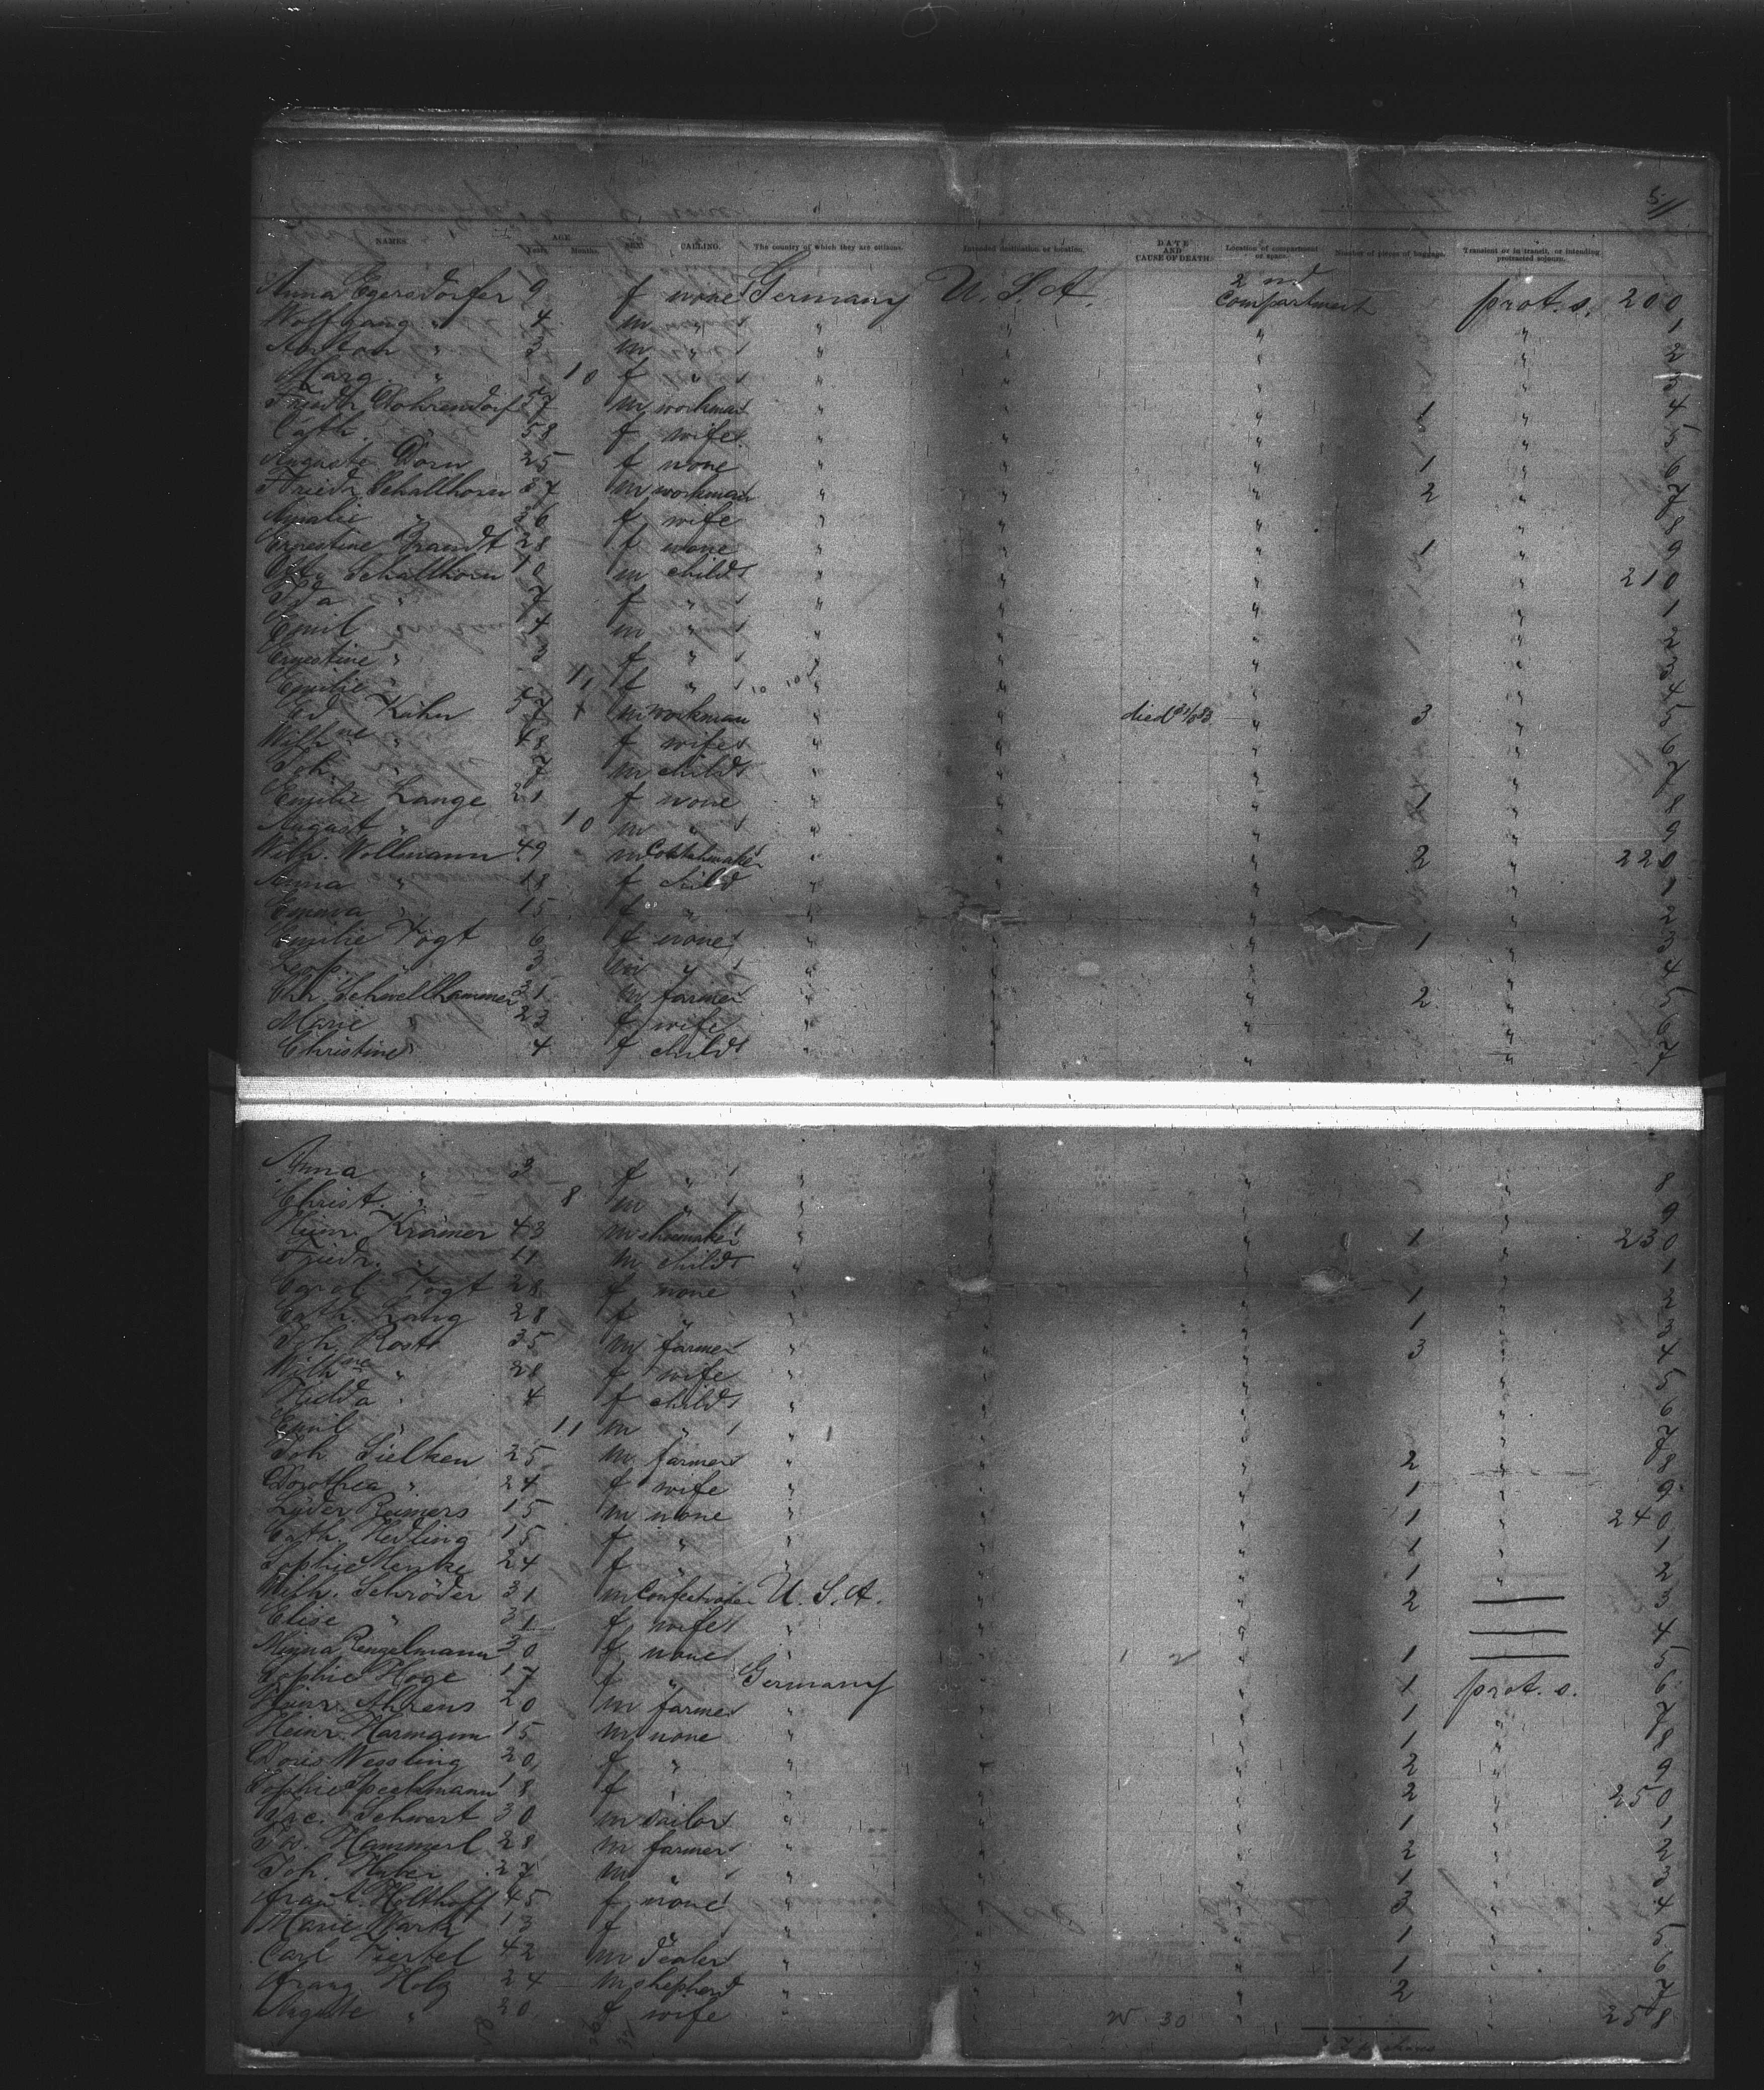 5/1
NAMES. AGE. Years. Months. SEX. CALLING. The country of which they are citizens. Intended destination or location. DATE AND CAUSE OF DEATH. Location of compartment or space. Number of pieces of baggage. Transient or in transit, or intending protracted sojourn.
Anna Egersdorfer 9 f none Germany U. S. A. 2nd Compartment prot. s. 200
Wolfgang " 4 m " " " " " 1
Anton " 3 m " " " " " 2
Marg. " 10 f " " " " " 3
Friedr. Dohrendorf 57 m workman " " " 1 " 4
Cath. " 58 f wife " " " " 5
Auguste Dorn 25 f none " " " 1 " 6
Friedr. Schallhorn 37 m workman " " " 2 " 7
Amalie " 36 f wife " " " " 8
Ernestine Brandt 28 f none " " " 1 " 9
Schallhorn 10 m child " " " " 210
Ida " 7 f " " " " " 1
Emil " 4 m " " " " " 2
Ernestine " 3 f " " " " " 3
Emilie " 11 f " " " " " 4
Ed. Kühn 57 + m workman " " died 31/3 83 " 3 " 5
Wilh.ne " 48 f wife " " " " 6
Joh. " 7 m child " " " " 7
Emilie Lange 21 f none " " " 1 " 8
August " 10 m " " " " " 9
Wilh. Wollmann 49 m " " " 2 " 220
Anna " 18 f child " " " " 1
Emma " 15 f " " " " " 2
Emilie Vogt 6 f none " " " 1 " 3
3 m " " " " " 4
Chr. Schwellhammer 31 m farmer " " " 2 " 5
Marie " 23 f wife " " " " 6
Christine " 4 f child " " " " 7
Anna " 3 f " " " " " 8
Christ. " 8 m " " " " " 9
Heinr. Krämer 43 m shoemaker " " " 1 " 230
Friedr. " 11 m child " " " " 1
Carol. Vogt 28 f none " " " 1 " 2
Cath. Lang 28 f " " " " 1 " 3
Joh. Rost 35 m farmer " " " 3 " 4
Wilh.ne " 28 f wife " " " " 5
Hedda " 4 f child " " " " 6
Emil " 11 m " " " " " 7
Joh. Sielken 25 m farmer " " " 2 " 8
Dorothea " 24 f wife " " " 1 " 9
Lüder Reimers 15 m none " " " 1 " 240
Cath. Hedling 15 f " " " " 1 " 1
Sophie Menke 24 f " " " " 1 " 2
Wilh. Schröder 31 m Confectioner U. S. A. " " 2 — 3
Elise " 31 f wife " " " — 4
Minna Renzelmann 30 f none " " " 1 — 5
Sophie Hoge 17 f " Germany " " 1 prot. s. 6
Heinr. Ahrens 20 m farmer " " " 1 " 7
Heinr. Harmann 15 m none " " " 1 " 8
Doris Wessling 20 f " " " " 2 " 9
Sophie Speckmann 18 f " " " " 2 " 250
Jac. Schwert 30 m sailor " " " 1 " 1
Hammerl 28 m farmer " " " 2 " 2
Joh. Huber 27 m " " " " 1 " 3
Holthoff 45 f none " " " 3 " 4
Marie Mark 13 f " " " " 1 " 5
Carl Viertel 42 m dealer " " " 1 " 6
Franz Holz 24 m shepherd " " " 2 " 7
Auguste " 20 f wife " " " " 258
W 30